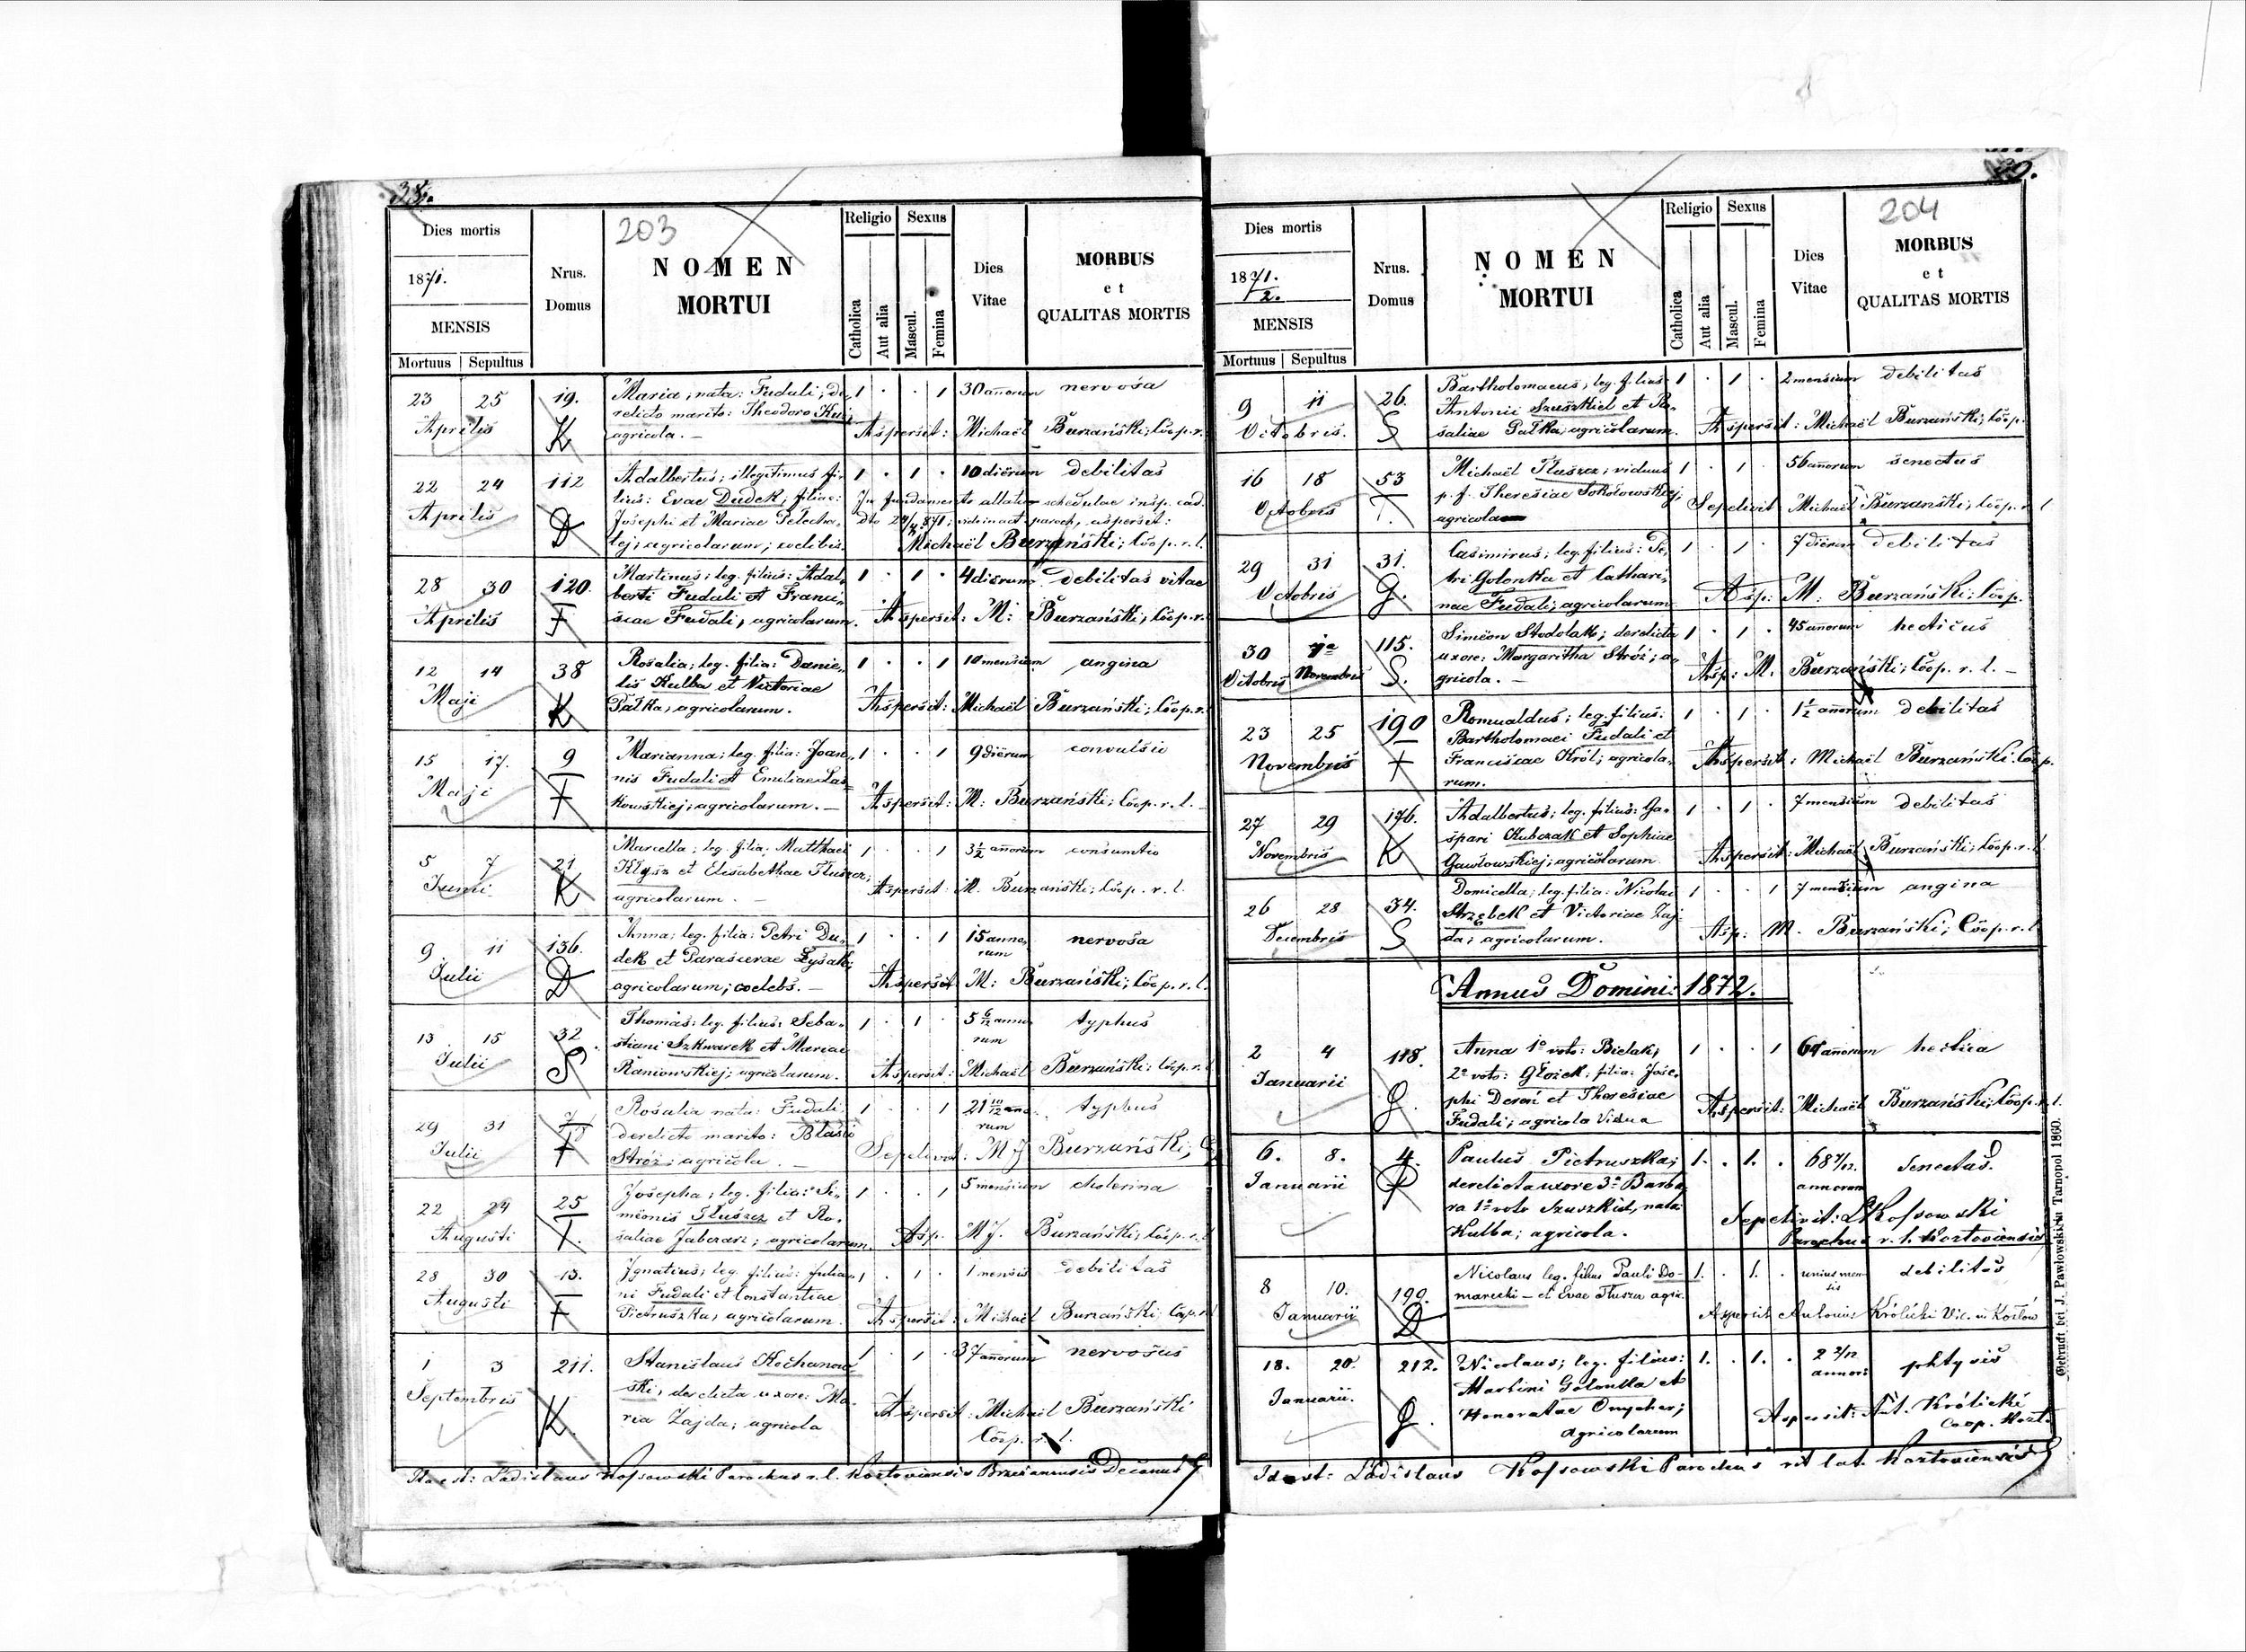 38.
203
Dies mortis
1871.
MENSIS
Mortuus | Sepultus
Nrus.
Domus
NOMEN
MORTUI
Religio
Catholica
Aut alia
Sexus
Mascul.
Femina
Dies
Vitae
MORBUS
et
QUALITAS MORTIS
23 25 19. Maria; nata: Fudali; de- 1 . . 1 30 annorum nervosa
Aprilis relicto marito: Theodoro
K agricola. — Aspersit: Michaël Burzański; Coop. r.
22 24 112 Adalbertus; illegitimus fi- 1 . 1 . 10 diërum debilitas
lius: Evae Dudek; filiae: In fundamento schedulae insp. cad.
Aprilis Josephi et Mariae aspersit:
D agricolarum; coelibis. Michaël Burzański; Coop. r. l.
28 30 120. Martinus; leg. filius: Adal- 1 . 1 . 4 dierum debilitas vitae
berti Fudali et Franci-
Aprilis F scae Fudali, agricolarum. Aspersit: M: Burzański; Coop. r.
12 14 38 Rosalia; leg. filia: Danie- 1 . . 1 10 mensium angina
lis Kulba et Victoriae
Maji K Pałka, agricolarum. Aspersit: Michaël Burzański; Coop. r.
15 17. 9 Marianna; leg. filia: Joan- 1 . . 1 9 diërum convulsio
nis Fudali et Emiliae Las-
Maji F kowskiej; agricolarum. — Aspersit: M: Burzański; Coop. r. l.
5 7 21 Marcella; leg. filia: Matthaei 1 . . 1 3½ annorum consumtio
Kłysz et Elisabethae Tłuszcz;
Junii K agricolarum. — Aspersit: M. Burzański; Coop. r. l.
9 11 136. Anna; leg. filia: Petri Du- 1 . . 1 15 anno- nervosa
dek et Parascevae Łysak; rum
Julii D agricolarum; coelebs. — Aspersit: M: Burzański; Coop. r. l.
13 15 32 Thomas; leg. filius: Seba- 1 . 1 . 5 6/12 anno- typhus
stiani Szkwarek et Mariae rum
Julii S Raniowskiej; agricolarum. Aspersit: Michaël Burzański; Coop. r. l.
29 31 Rosalia nata: Fudali; 1 . . 1 21 10/12 anno- typhus
derelicto marito: Blasio rum
Julii F Stróż; agricola. — Sepelivit: M J Burzański;
22 24 25 Josepha; leg. filia: Si- 1 . . 1 5 mensium cholerina
meonis Tłuszcz et Ro-
Augusti T. saliae Jabczarz; agricolarum. Asp. M J. Burzański; Coop. r. l.
28 30 13. Ignatius; leg. filius: Julia- 1 . 1 . 1 mensis debilitas
ni Fudali et Constantiae
Augusti F Pietruszka, agricolarum. Aspersit: Michaël Burzański; Coop. r. l.
1 3 211. Stanislaus Kochanow- 1 . 1 . 37 annorum nervosus
ski, derelicta uxore: Ma-
Septembris K. ria Zajda; agricola Aspersit: Michaël Burzański
Coop. r. l.
Ita est: Ladislaus Kossowski Parochus r. l. Kozłoviensis Brzezanensis Decanus
39.
204
Dies mortis
1871.
2.
MENSIS
Mortuus | Sepultus
Nrus.
Domus
NOMEN
MORTUI
Religio
Catholica
Aut alia
Sexus
Mascul.
Femina
Dies
Vitae
MORBUS
et
QUALITAS MORTIS
9 11 26. Bartholomaeus; leg. filius: 1 . 1 . 2 mensium debilitas
Antonii Szuszkiel et Ro-
Octobris. S saliae Pałka; agricolarum. Aspersit: Michaël Burzański; Coop.
16 18 53 Michaël Tłuszcz; viduus 1 . 1 . 56 annorum senectus
p. f. Theresiae Sokołowskiej
Octobris T. agricola Sepelivit Michaël Burzański; Coop. r. l
29 31 31. Casimirus; leg. filius: Pe- 1 . 1 . 7 diërum debilitas
tri Golonka et Cathari-
Octobris G. nae Fudali; agricolarum Asp: M: Burzański; Coop.
30 1ma 115. Simëon Stodolak; derelicta 1 . 1 . 45 annorum hecticus
uxore: Margaritha Stróż; a-
Octobris Novembris S. gricola. — Asp: M. Burzański; Coop. r. l. —
23 25 190 Romualdus; leg. filius: 1 . 1 . 1½ annorum debilitas
Bartholomaei Fudali et
Novembris F Franciscae Król; agricola- Aspersit: Michaël Burzański. Coop.
rum.
27 29 176. Adalbertus; leg. filius: Ga- 1 . 1 . 7 mensium debilitas
spari Kubczak et Sophiae
Novembris K Gawłowskiej; agricolarum. Aspersit: Michaël Burzański; Coop. r. l.
26 28 34. Domicella; leg. filia: Nicolai 1 . . 1 7 mensium angina
Strzębek et Victoriae Zaj-
Decembris S da; agricolarum. Asp: M. Burzański; Coop. r. l
Annus Domini: 1872.
2 4 118. Anna 1º voto: Bielak, 1 . . 1 64 annorum hectica
2º voto: Głożek; filia: Jose-
Januarii phi Deroń et Theresiae
G. Fudali; agricola vidua Aspersit: Michaël Burzański; Coop. r. l.
6. 8. 4. Paulus Pietruszka; 1. . 1. . 68 annorum Senectus.
Januarii P derelicta uxore 3ª Barba-
ra 1º voto Szuszkiel, nata Sepelivit: L Kossowski
Kulba; agricola. Parochus r. l. Kozłoviensis
8 10. 199. Nicolaus leg. filius Pauli Do- 1. . 1. . unius men- debilitas
marecki — et Evae Tłuszcz agric. sis
Januarii D Aspersit Antonius Królicki Vic. in Kozłów
18. 20. 212. Nicolaus; leg. filius: 1. . 1. . 2 3/12 phtysis
Martini Golonka et annor:
Januarii. G. Honoratae Onycher; Aspersit: Ant. Królicki
agricolarum Coop. Kozł.
Ida est: Ladislaus Kossowski Parochus rit lat. Kozłoviensis
Gedruckt bei J. Pawłowski in Tarnopol 1860.